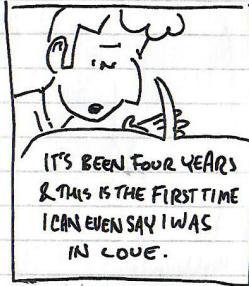 IT'S BEEN FOUR YEARS
& THIS IS THE FIRST TIME
I CAN EVEN SAY I WAS
IN LOVE.